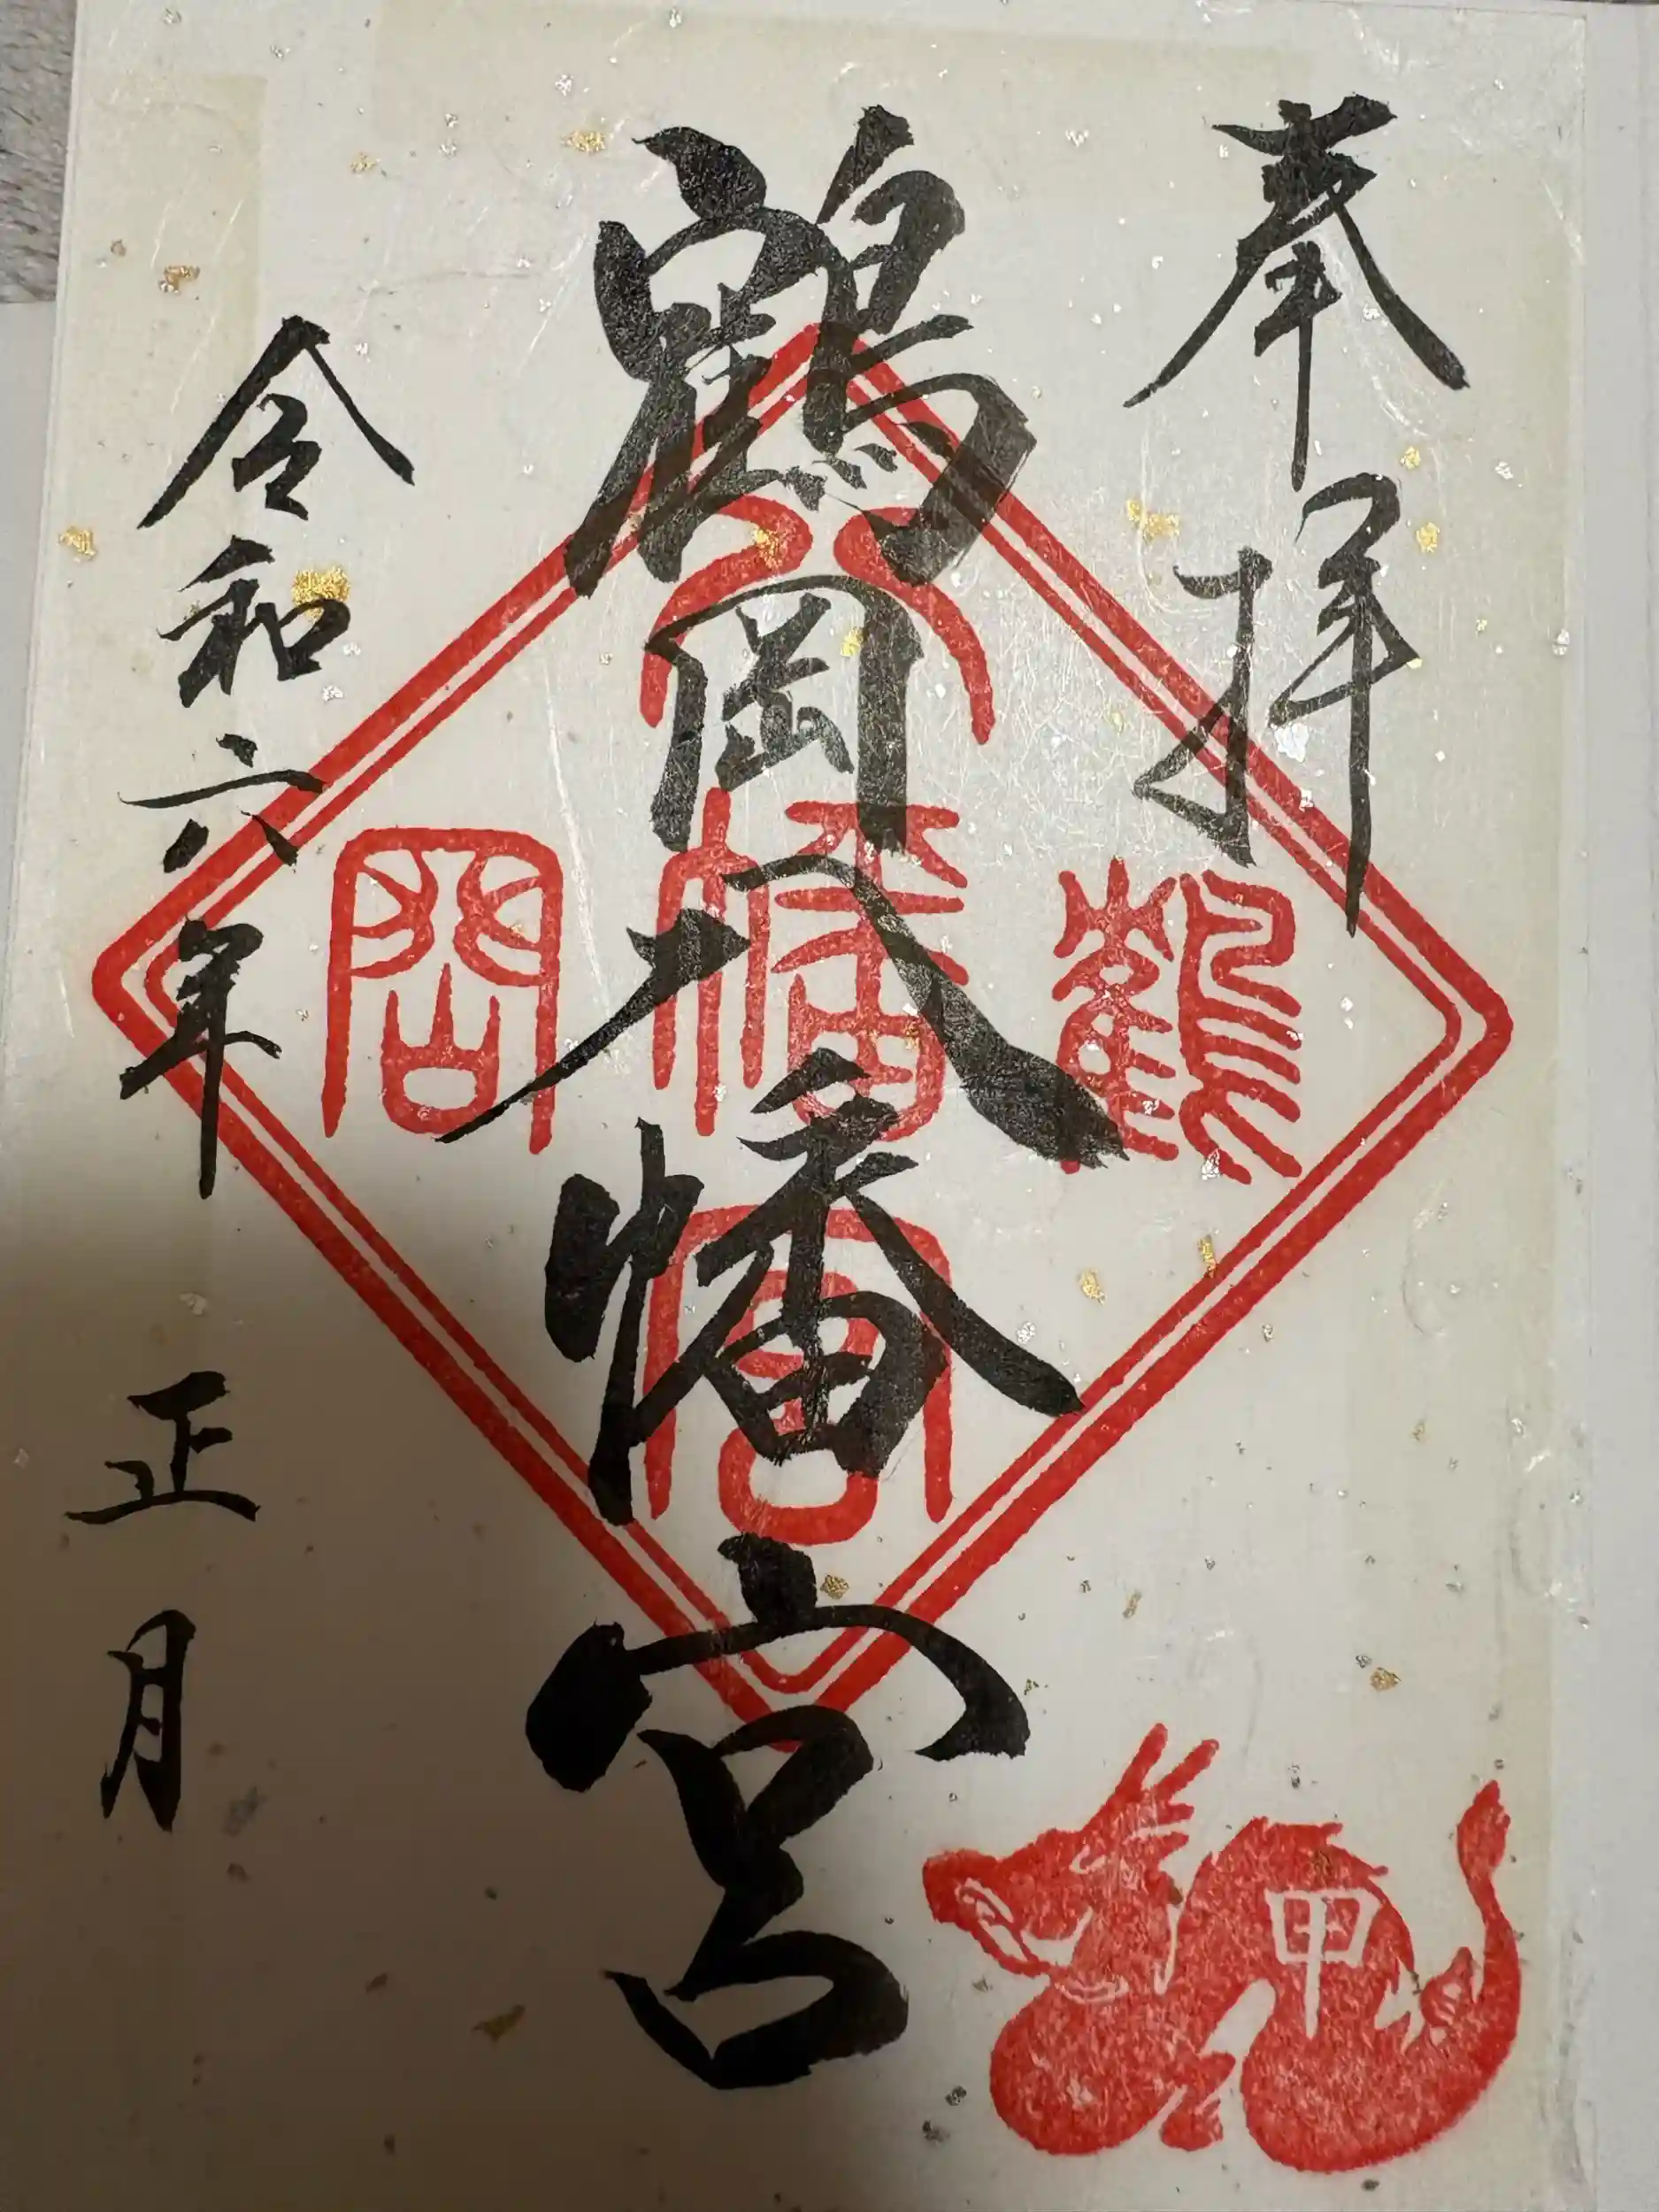 奉拝
鶴岡八幡宮
令和六年 正月
鶴
八
幡
宮
岡
甲